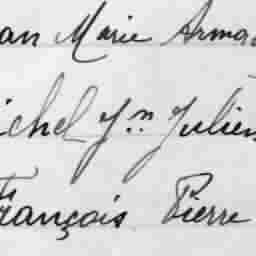 an Marie Arma
ichel Jn. Julien
François Pierre